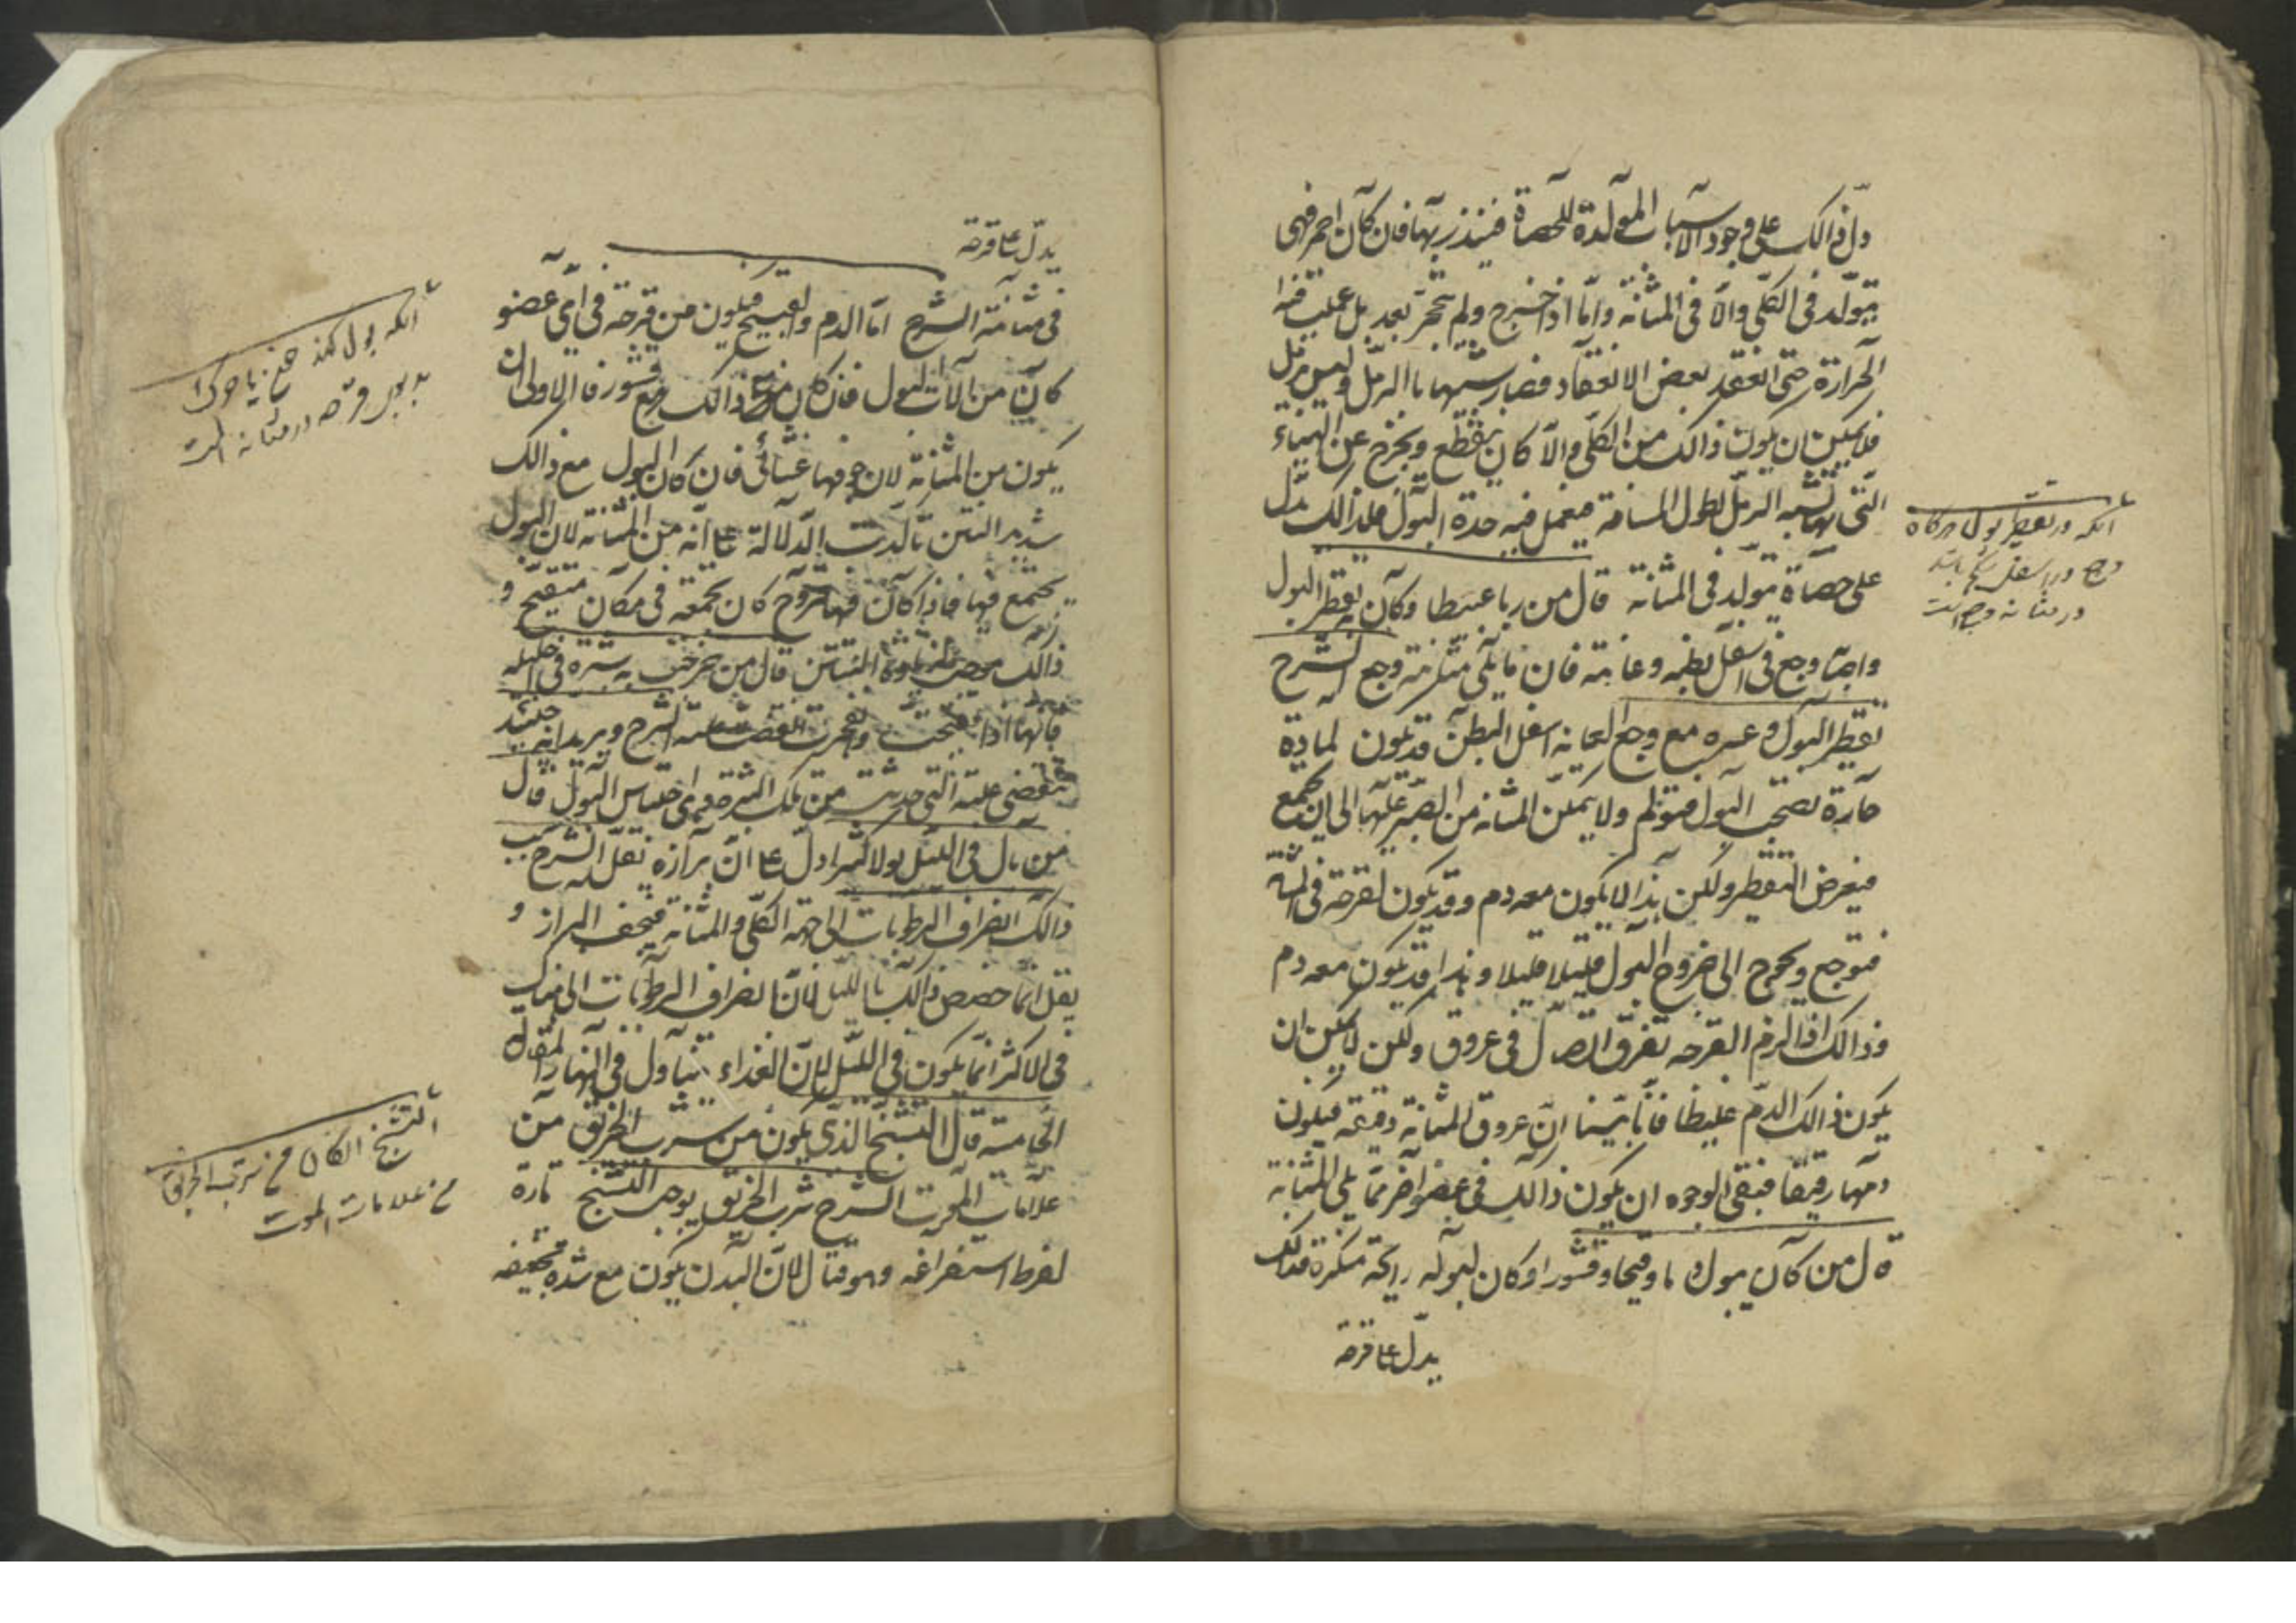 دل ذالك على وجود الاسباب المولدة للحصاة فينذر بها فان كان احمر فهى
يتولد فى الكلى والا فى المثانة واما اذا خرج ولم تتحجر بعد بل عملت فيه
الحرارة حتى انعقد بعض الانعقاد فصار شبيها باالرمل وليس برمل
فلا يمكن ان يكون ذالك من الكلى والا كان ينقطع ويخرج عن الهيأة
التى بها تشبه الرمل لطول المسافة فيعمل فيه حدة البول فلذالك يدل
على حصاة تتولد فى المثانة قال من ربا عبيطا وكان به تقطير البول
واصابه وجع فى اسفل بطنه وعانته فان ما يلى مثانته وجع الشرح
تقطير البول وعسره مع وجع العانة اسفل البطن قد تكون لمادة
حارة تصحب البول فتولم ولا يمكن المثانة من الصبر عليها الى ان يجتمع
فيعرض التقطير ولكن هذا لا يكون معه دم وقد يكون لقرحة فى المثانة
فتوجع ويحوج الى خروج البول قليلا قليلا وهذا قد يكون معه دم
وذالك اذا لزم القرحه تفرق اتصال فى عروق ولكن لا يمكن ان
يكون ذالك الدم غليظا فانا بينا ان عروق المثانة دقيقة فيكون
دمها رقيقا فبقى الوجوه ان يكون ذالك فى عضو اخر مما يلى المثانة
قال من كان يبول دما وقيحا وقشورا وكان لبوله رايحة منكرة فذلك
يدل على قرحة
آنكه در تقطير بول هرگاه
وجع در اسفل شكم باشد
در مثانه وجع است
يدل على قرحة
فى مثانته الشرح اما الدم والقيح فيكون من قرحة فى اى عضو
كان من آلات البول فان كان مع ذالك قشور فالاولى ان
يكون من المثانة لان جوفها غشائى فان كان البول مع ذالك
شديد النتن تاكدت الدلالة على انه من المثانة لان البول
يجتمع فيها فاذا كان فيها قروح كان يجمعه فى مكان متقيح و
ذالك قال من خرجت به بثرة فى احليله
فانها اذا انفتحت وانفجرت انقضت علته الشرح ويريد انه حينئذ
تنقضى علته التى حدثت من تلك البثرة وهى احتباس البول قال
من بال فى الليل بولا كثيرا دل على ان برازه يقل الشرح سبب
ذالك انصراف الرطوبات الى جهة الكلى والمثانة فيجف البراز و
يقل انما خصص ذالك بالليل لان انصراف الرطوبات الى هناك
فى الاكثر انما يكون فى الليل لان الغذاء يتناول فى النهار المقالة
الخامسة قال التشنج الذى يكون من شرب الخربق من
علامات الموت الشرح شرب الخربق يوجب التشنج تارة
لفرط استفراغه وهو قتال لان البدن يكون مع شدة تجفيفه
آنكه بول كند خون يا چرك
بدبوى قرحه در مثانه است
التشنج الكائن من شرب الخربق
من علامات الموت